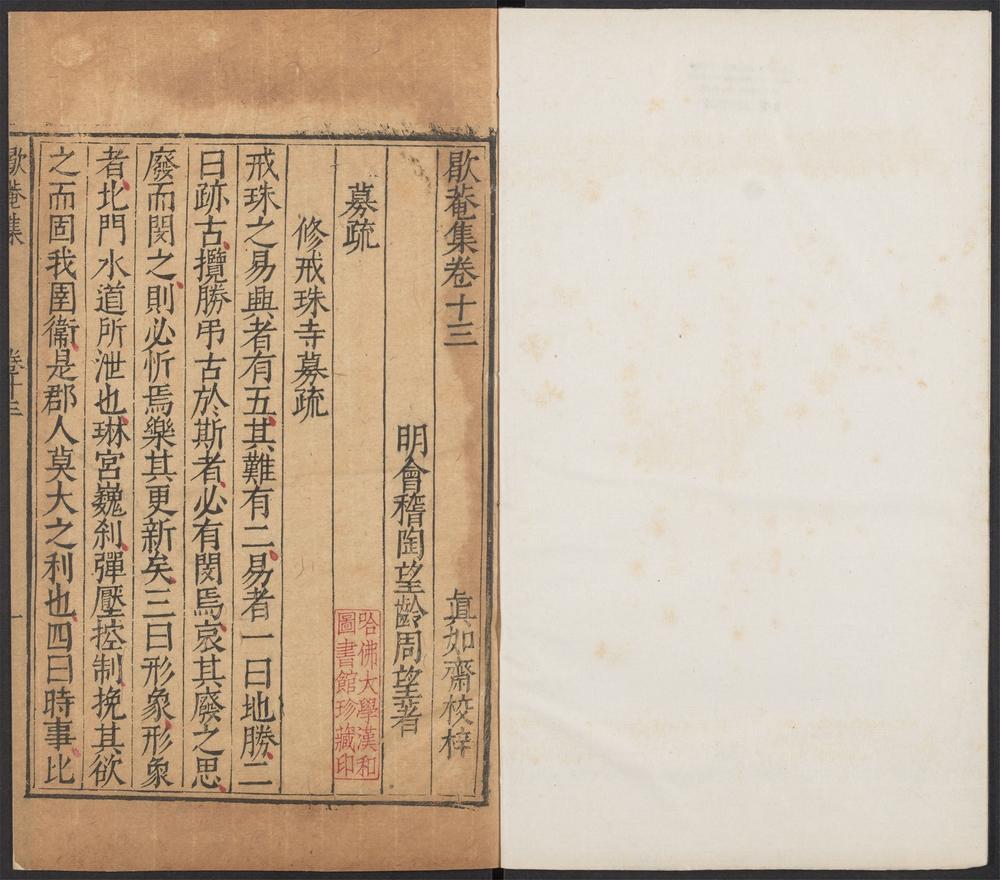 歇菴集卷十三
眞如齋校梓
明會稽陶望齡周望著
募疏
修戒珠寺募疏
戒珠之易興者有五其難有二易者一曰地勝二
曰跡古攬勝弔古於斯者必有閔焉哀其廢之思
廢而閔之則必忻焉樂其更新矣三曰形象形象
者北門水道所泄也琳宮巍刹彈壓控制挽其欲
之而固我圉衛是郡人莫大之利也四曰時事比
歇菴集
卷十三
一
哈佛大學漢和
圖書館珍藏印